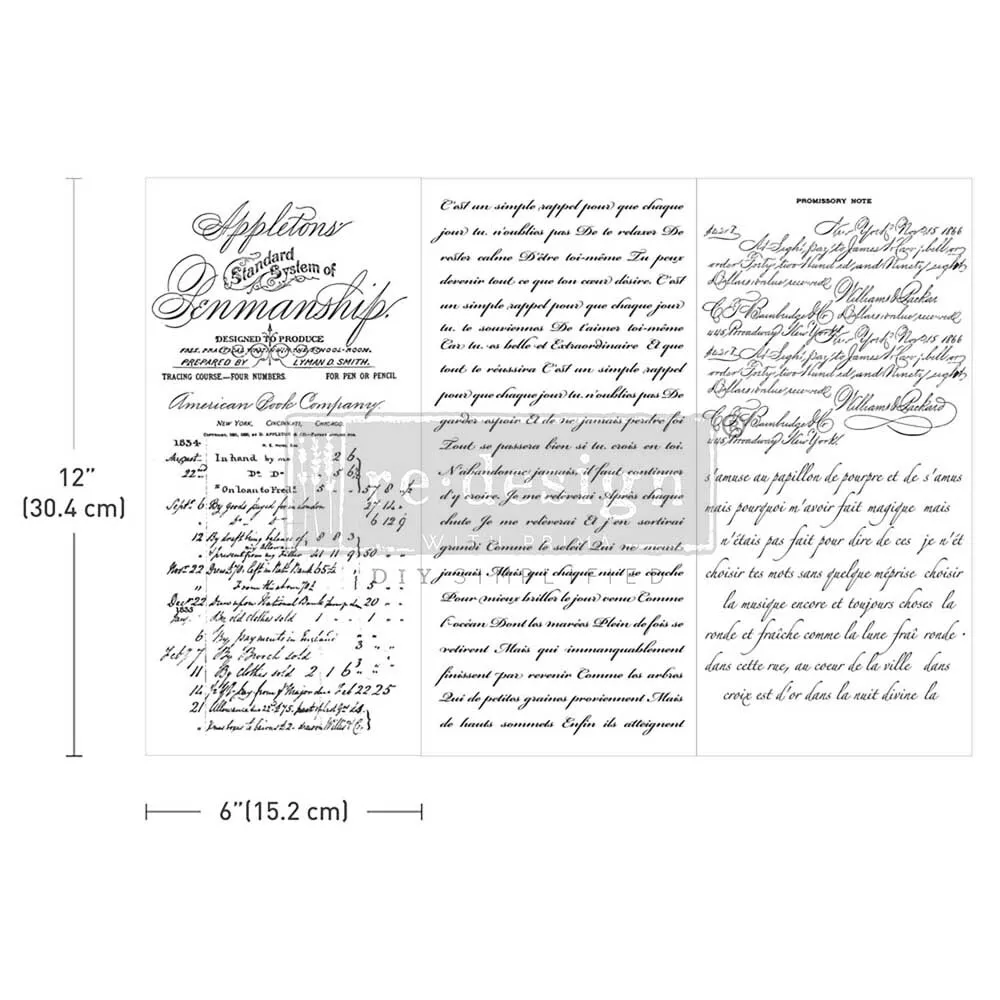 12"
(30.4 cm)
6"(15.2 cm)
Appletons'
Standard
System of
Penmanship.
DESIGNED TO PRODUCE
PREPARED BY LYMAN D. SMITH.
TRACING COURSE—FOUR NUMBERS. FOR PEN OR PENCIL
American Book Company.
NEW YORK, CINCINNATI, CHICAGO.
1834
August In hand by me 2 6
22nd Do Do 5 6
"On loan to Fred: 5 - 57 8
Sept. 6 By goods payed for in London 27 14
6 12 9
12 By draft being balance of 8 8 3
Nov. 22
Decr 22 Drawn upon National Bank 20
1835
Jany. By old clothes sold 1 - 1
6 By payments in England
Feb 7 7 By Broch sold
11 By clothes sold 2 1 6
14 22 25
21 Allowance
C'est un simple rappel pour que chaque
jour tu n'oublies pas De te relaxer De
rester calme D'être toi-même Tu peux
devenir tout ce que ton cœur désire. C'est
un simple rappel pour que chaque jour
tu te souviennes De t'aimer toi-même
Car tu es belle et Extraordinaire Et que
tout te réussira C'est un simple rappel
pour que chaque jour tu n'oublies pas De
garder espoir Et de ne jamais perdre foi
Tout se passera bien si tu crois en toi.
N'abandonne jamais, il faut continuer
d'y croire. Je me relèverai Après chaque
chute Je me relèverai Et j'en sortirai
grandi Comme le soleil Qui ne meurt
jamais Mais qui chaque nuit se couche
Pour mieux briller le jour venu Comme
l'océan Dont les marées Plein de fois se
retirent Mais qui immanquablement
finissent par revenir Comme les arbres
Qui de petites graines proviennent Mais
de hauts sommets Enfin ils atteignent
PROMISSORY NOTE
New York Nov 15 1866
At Sight, pay to James W Carr, bill or
order Forty two Hundred, and Ninety eight
Dollars value received
Williams & Packar
C. F. Bainbridge & Co Dollars value received
445, Broadway New York New York Nov 15 1866
At Sight, pay to James W Carr, bill or
order Forty two Hundred, and Ninety eight
Dollars value received
Williams & Packard
C. F. Bainbridge & Co
445, Broadway New York
s'amuse au papillon de pourpre et de s'amus
mais pourquoi m'avoir fait magique mais
n'étais pas fait pour dire de ces je n'ét
choisir tes mots sans quelque méprise choisir
la musique encore et toujours choses la
ronde et fraîche comme la lune fraî ronde
dans cette rue, au coeur de la ville dans
croix est d'or dans la nuit divine la
re·design
WITH PRIMA
DIY SIMPLIFIED